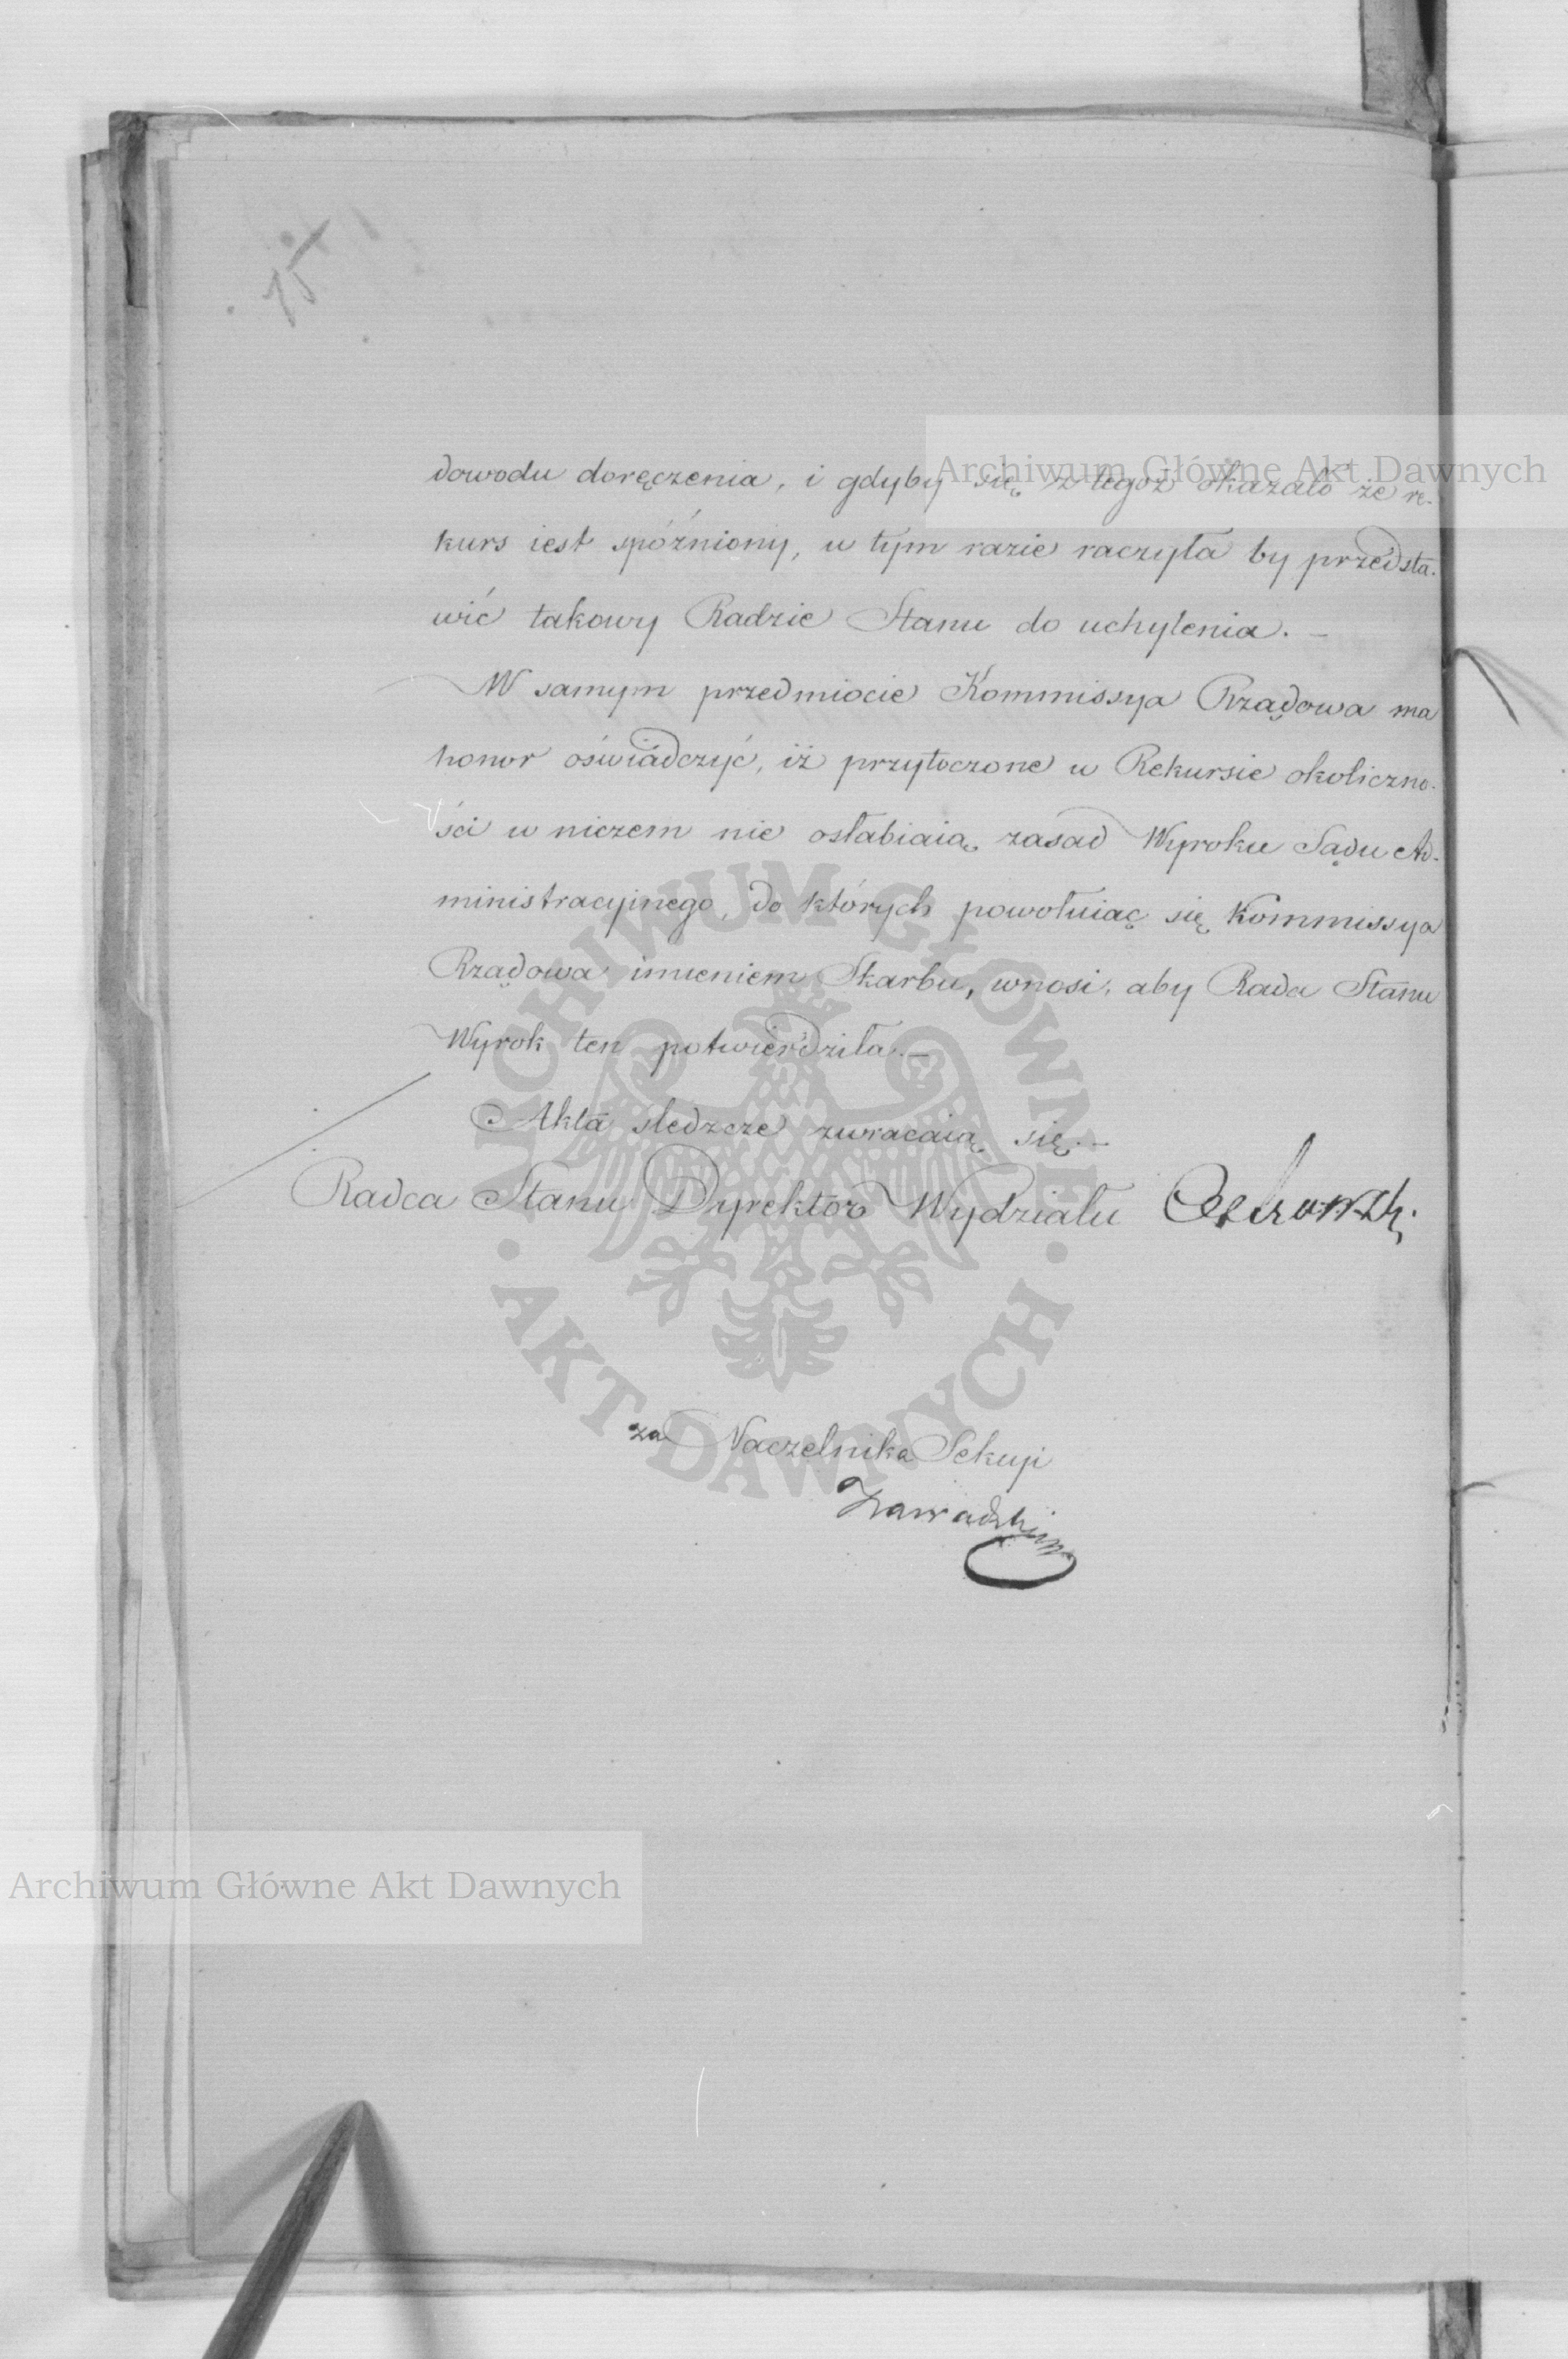 15
dowodu doręczenia, i gdyby się z tegoż okazało że re-
kurs iest spóźniony, w tym razie raczyła by przedsta-
wić takowy Radzie Stanu do uchylenia. —
W samym przedmiocie Kommissya Rządowa ma
honor oświadczyć, iż przytoczone w Rekursie okoliczno-
ści w niczem nie osłabiaią zasad Wyroku Sądu Ad-
ministracyinego, do których powołuiąc się Kommissya
Rządowa imieniem Skarbu, wnosi, aby Rada Stanu
Wyrok ten potwierdziła. —
Akta śledzcze zwracaią się. —
Radca Stanu Dyrektor Wydziału
za Naczelnika Sekcyi
Zawadzki
Archiwum Główne Akt Dawnych
ARCHIWUM GŁÓWNE
AKT DAWNYCH
Archiwum Główne Akt Dawnych